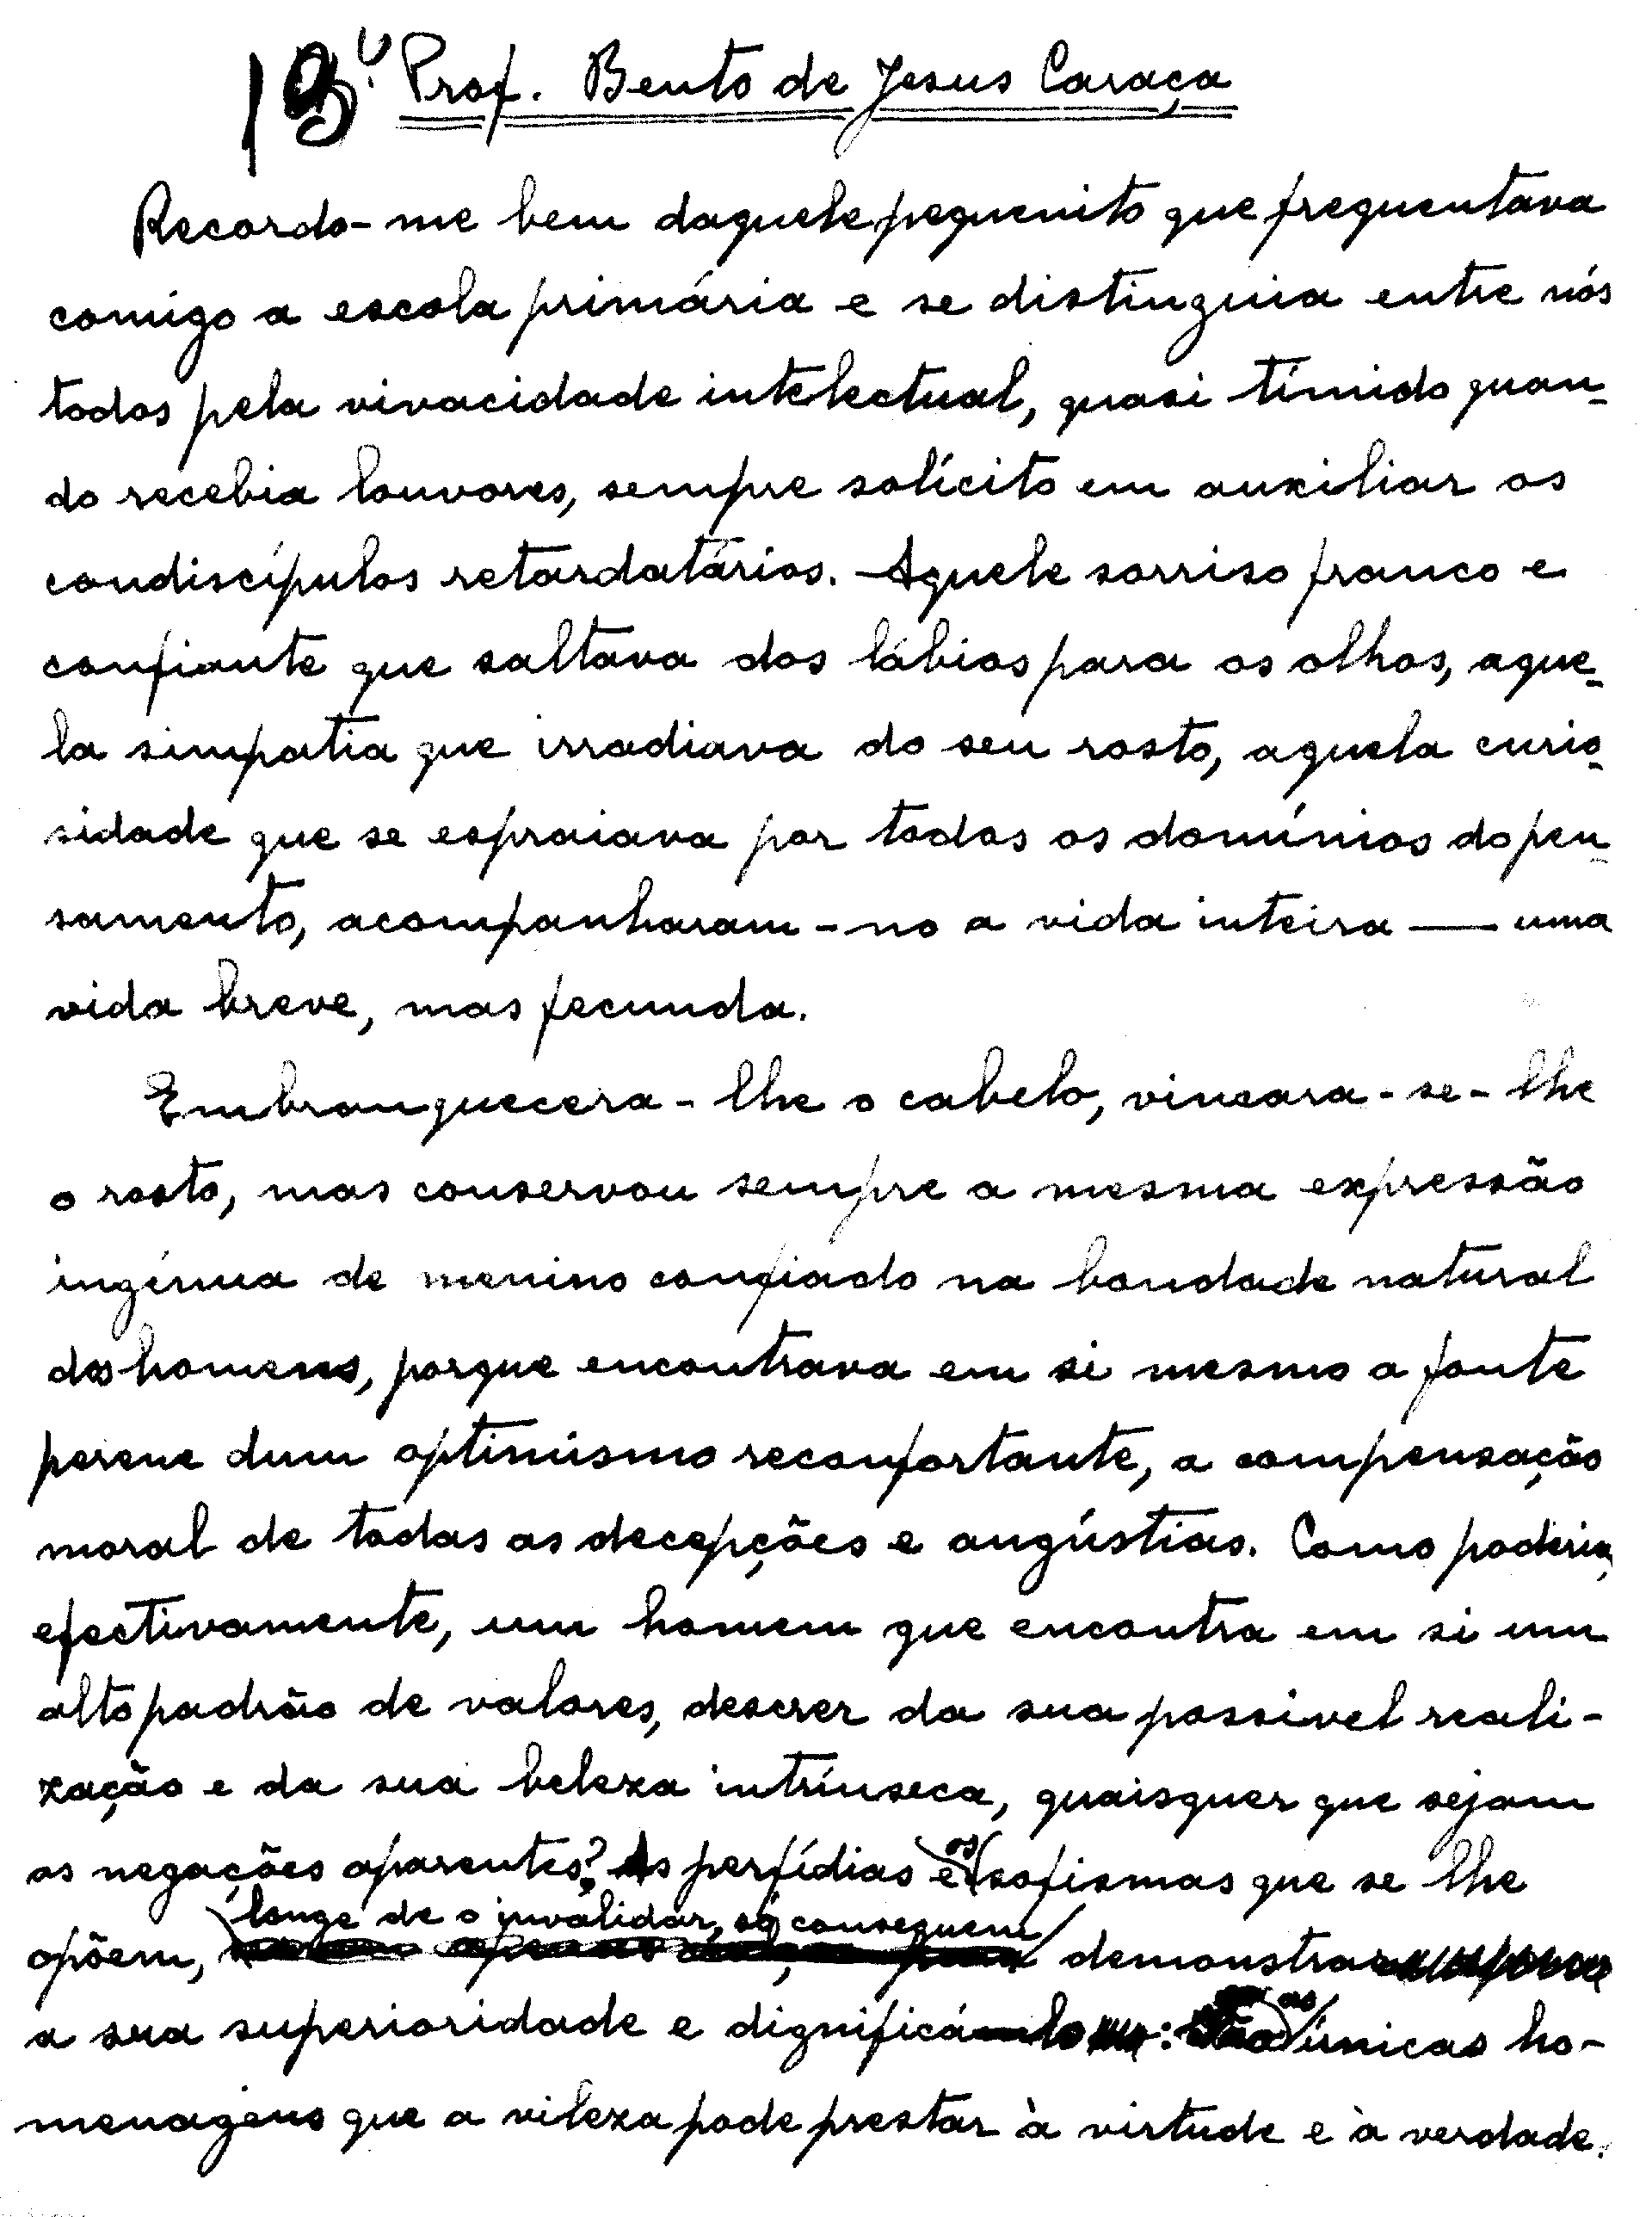 Prof. Bento de Jesus Caraça
Recordo-me bem daquele pequenito que frequentava
comigo a escola primária e se distinguia entre nós
todos pela vivacidade intelectual, quasi tímido quan-
do recebia louvores, sempre solícito em auxiliar os
condiscípulos retardatários. Aquele sorriso franco e
confiante que saltava dos lábios para os olhos, aque-
la simpatia que irradiava do seu rosto, aquela curio-
sidade que se espraiava por todos os domínios do pen-
samento, acompanharam-no a vida inteira — uma
vida breve, mas fecunda.
Embranquecera-lhe o cabelo, vincara-se-lhe
o rosto, mas conservou sempre a mesma expressão
ingénua de menino confiado na bondade natural
dos homens, porque encontrava em si mesmo a fonte
perene dum optimismo reconfortante, a compensação
moral de todas as decepções e angústias. Como poderia,
efectivamente, um homem que encontra em si um
alto padrão de valores, descrer da sua possivel reali-
zação e da sua beleza intrínseca, quaisquer que sejam
as negações aparentes? As perfídias e os sofismas que se lhe
opõem, longe de o invalidar, só conseguem demonstrar
a sua superioridade e dignificá-lo: as únicas ho-
menagens que a vileza pode prestar à virtude e à verdade.